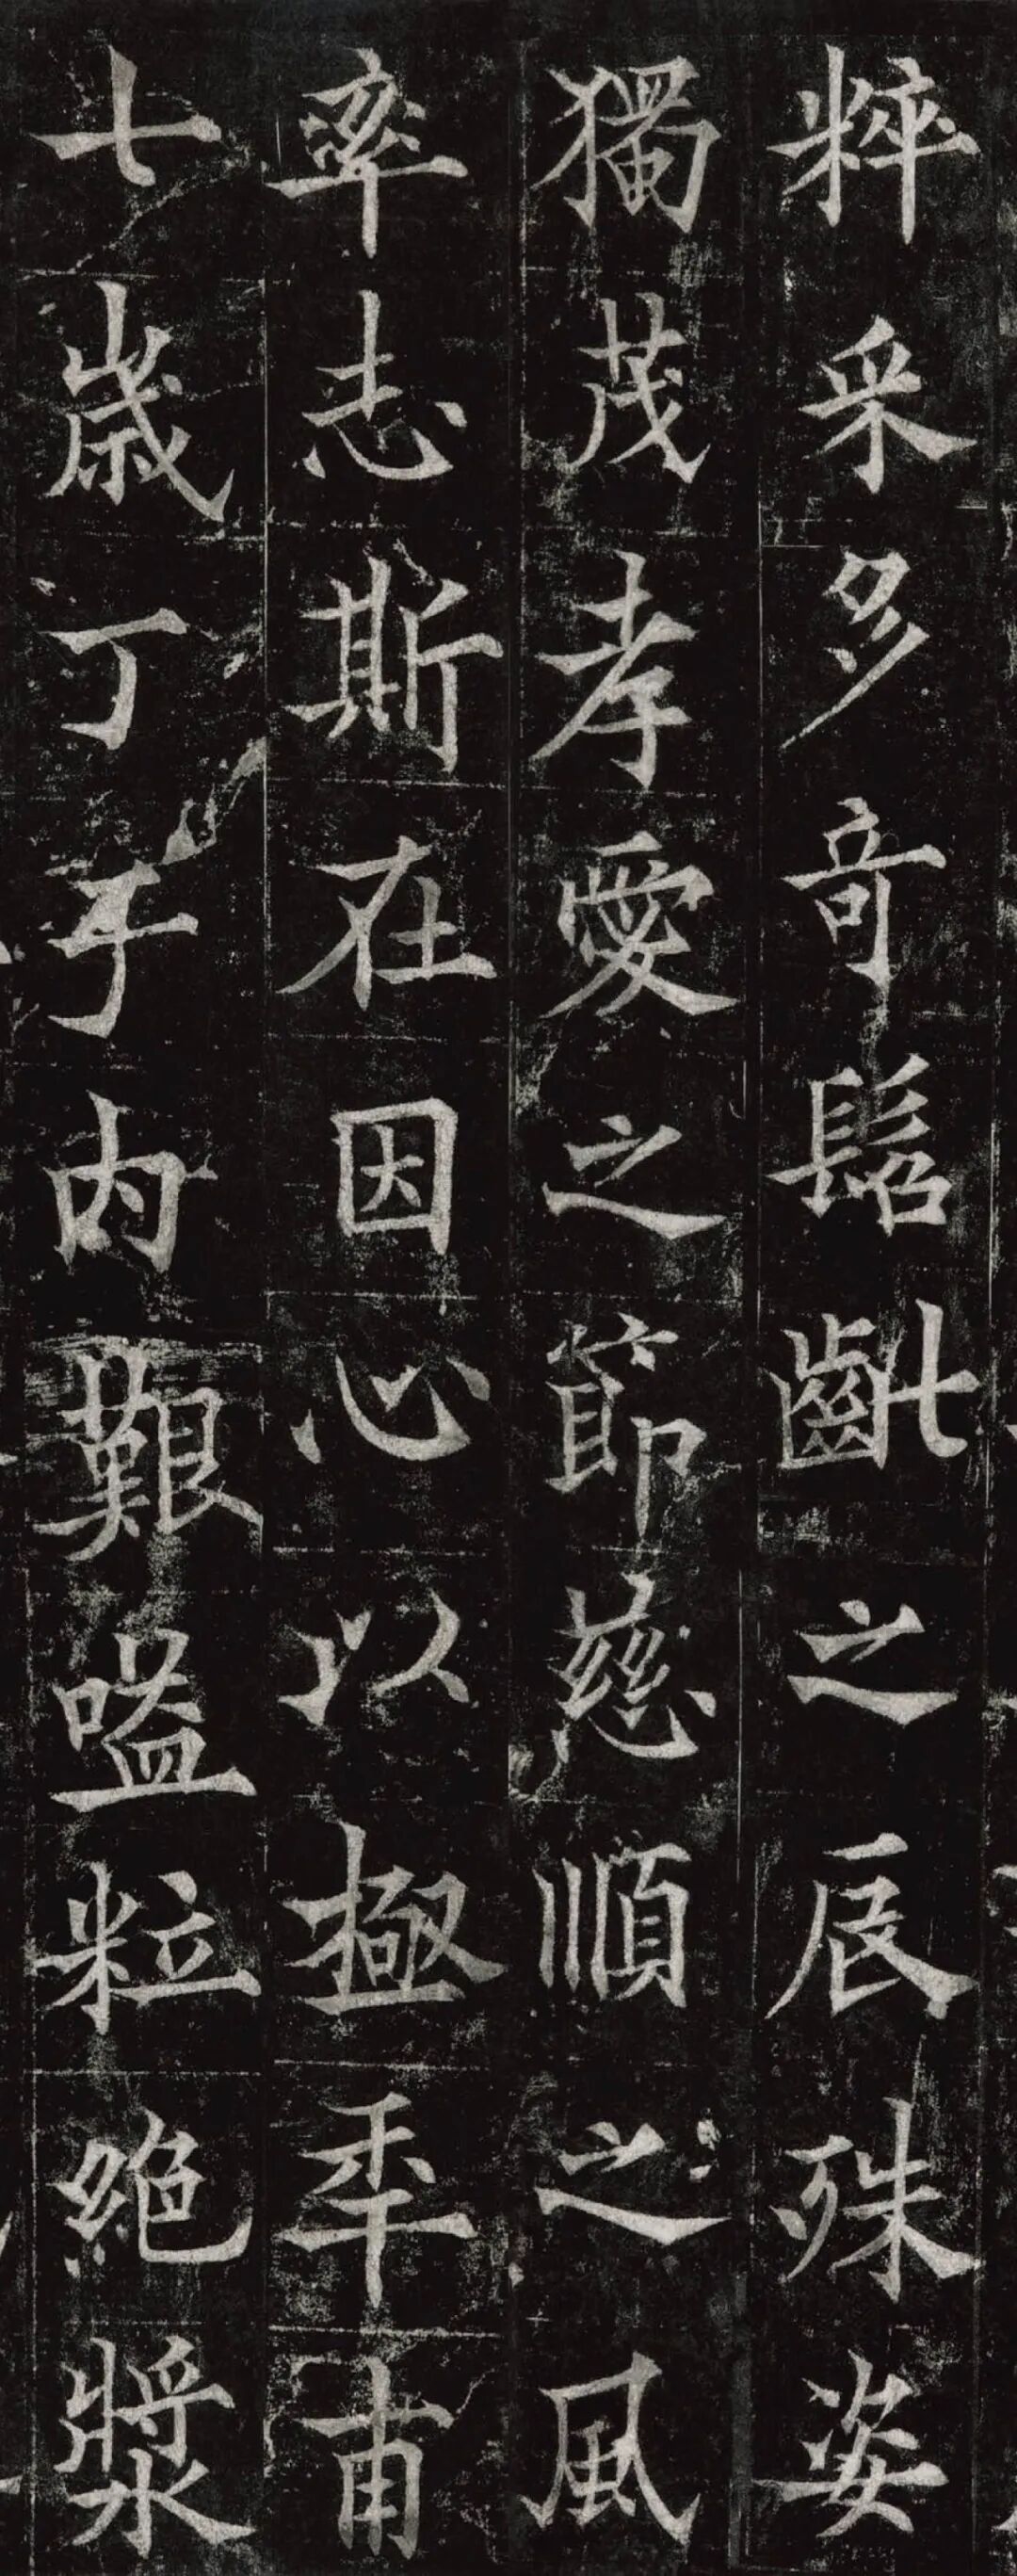 粹采多奇髫齔之辰殊姿
獨茂孝愛之節慈順之風
率志斯在因心以極年甫
七歲丁于內艱嗑粒絕漿